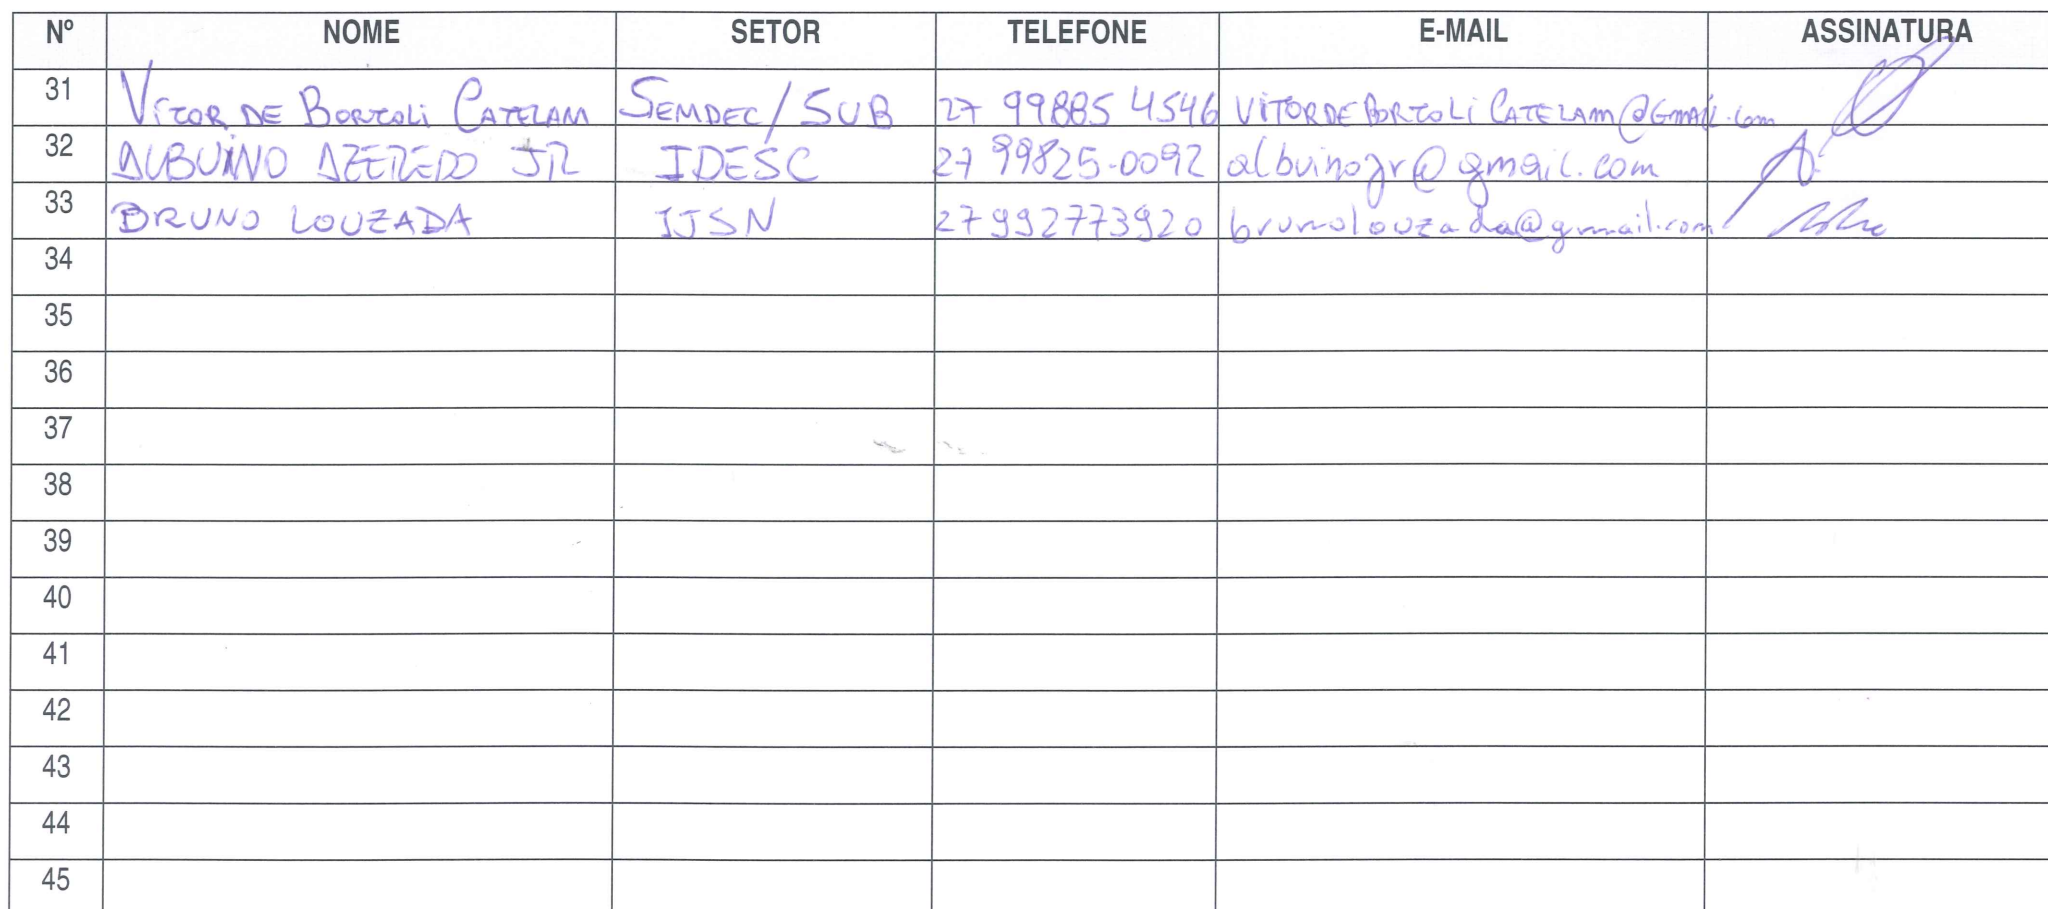 Nº NOME SETOR TELEFONE E-MAIL ASSINATURA
31 VITOR DE BORTOLI CATELAM SEMDEC/SUB 27 99885 4546 VITORDEBORTOLICATELAM@GMAIL.com
32 ALBUINO AZEREDO JR IDESC 27 99825-0092 albuinojr@gmail.com
33 BRUNO LOUZADA IJSN 27 992773920 brunolouzada@gmail.com
34
35
36
37
38
39
40
41
42
43
44
45